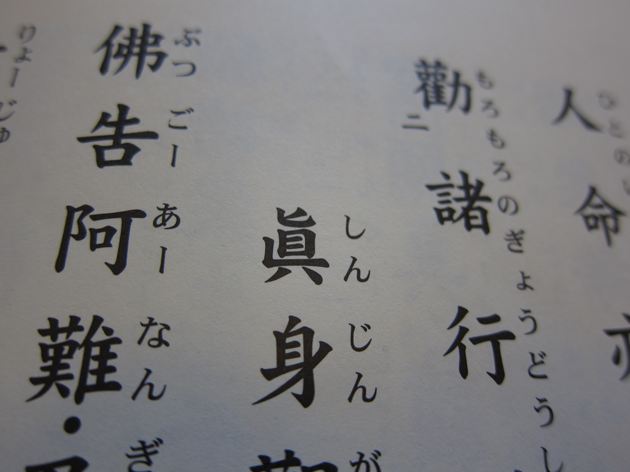 人命
ひとのい
勸二諸行
もろもろのぎょうどうし
眞身
しんじんが
佛告阿難・
ぶつごーあーなんぎ
りょーじゅ